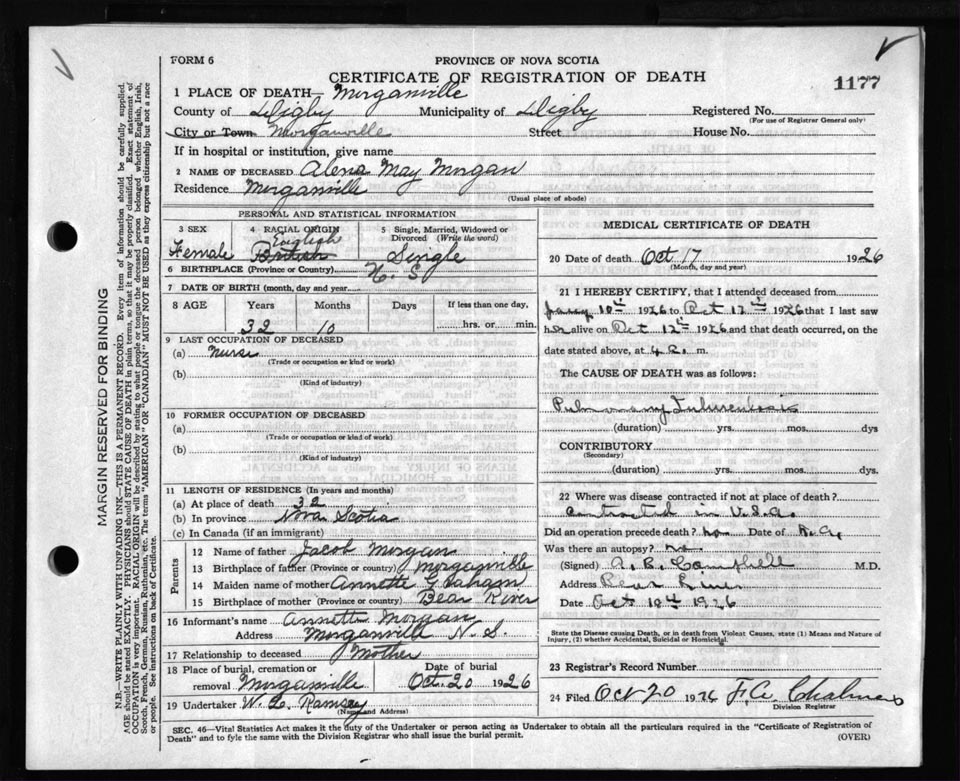 FORM 6
PROVINCE OF NOVA SCOTIA
CERTIFICATE OF REGISTRATION OF DEATH
1177
1 PLACE OF DEATH— Morganville
County of Digby Municipality of Digby Registered No.
(For use of Registrar General only)
City or Town Morganville Street House No.
If in hospital or institution, give name
2 NAME OF DECEASED Alena May Morgan
Residence Morganville
(Usual place of abode)
MARGIN RESERVED FOR BINDING
N.B.—WRITE PLAINLY WITH UNFADING INK—THIS IS A PERMANENT RECORD. Every item of information should be carefully supplied.
AGE should be stated EXACTLY. PHYSICIANS should STATE CAUSE OF DEATH in plain terms, so that it may be properly classified. Exact statement of
OCCUPATION is very important. RACIAL ORIGIN will be described by stating to what people or tongue the deceased person belonged whether English, Irish,
Scotch, French, German, Russian, Ruthenian, etc. The terms "AMERICAN" OR "CANADIAN" MUST NOT BE USED as they express citizenship but not a race
or people. See instructions on back of Certificate.
PERSONAL AND STATISTICAL INFORMATION
3 SEX 4 RACIAL ORIGIN 5 Single, Married, Widowed or
Divorced (Write the word)
English
Female British Single
6 BIRTHPLACE (Province or Country) N. S
7 DATE OF BIRTH (month, day and year)
8 AGE Years Months Days If less than one day,
32 10 hrs. or min.
9 LAST OCCUPATION OF DECEASED
(a) Nurse
(Trade or occupation or kind or work)
(b)
(Kind of industry)
10 FORMER OCCUPATION OF DECEASED
(a)
(Trade or occupation or kind of work)
(b)
(Kind of industry)
11 LENGTH OF RESIDENCE (In years and months)
(a) At place of death 32
(b) In province Nova Scotia
(c) In Canada (if an immigrant)
Parents
12 Name of father Jacob Morgan
13 Birthplace of father (Province or country) Morganville
14 Maiden name of mother Annette Graham
15 Birthplace of mother (Province or country) Bear River
16 Informant's name Annette Morgan
Address Morganville N. S.
17 Relationship to deceased Mother
18 Place of burial, cremation or Date of burial
removal Morganville Oct. 20 1926
19 Undertaker W. E. Ramsey
(Name and Address)
MEDICAL CERTIFICATE OF DEATH
20 Date of death Oct 17 1926
(Month, day and year)
21 I HEREBY CERTIFY, that I attended deceased from
10th 1926 to Oct 12th 1926 that I last saw
her alive on Oct 12th 1926 and that death occurred, on the
date stated above, at 4 a. m.
The CAUSE OF DEATH was as follows:
Pulmonary Tuberculosis
(duration) yrs. mos. dys
CONTRIBUTORY
(Secondary)
(duration) yrs. mos. dys.
22 Where was disease contracted if not at place of death?
Contracted in U.S.A.
Did an operation precede death? no Date of
Was there an autopsy? no
(Signed) A. B. Campbell M.D.
Address Bear River
Date Oct 1926
State the Disease causing Death, or in death from Violent Causes, state (1) Means and Nature of
Injury, (2) whether Accidental, Suicidal or Homicidal.
23 Registrar's Record Number
24 Filed Oct 20 1926 F. A. Chalmers
Division Registrar
SEC. 46—Vital Statistics Act makes it the duty of the Undertaker or person acting as Undertaker to obtain all the particulars required in the "Certificate of Registration of
Death" and to fyle the same with the Division Registrar who shall issue the burial permit.
(OVER)